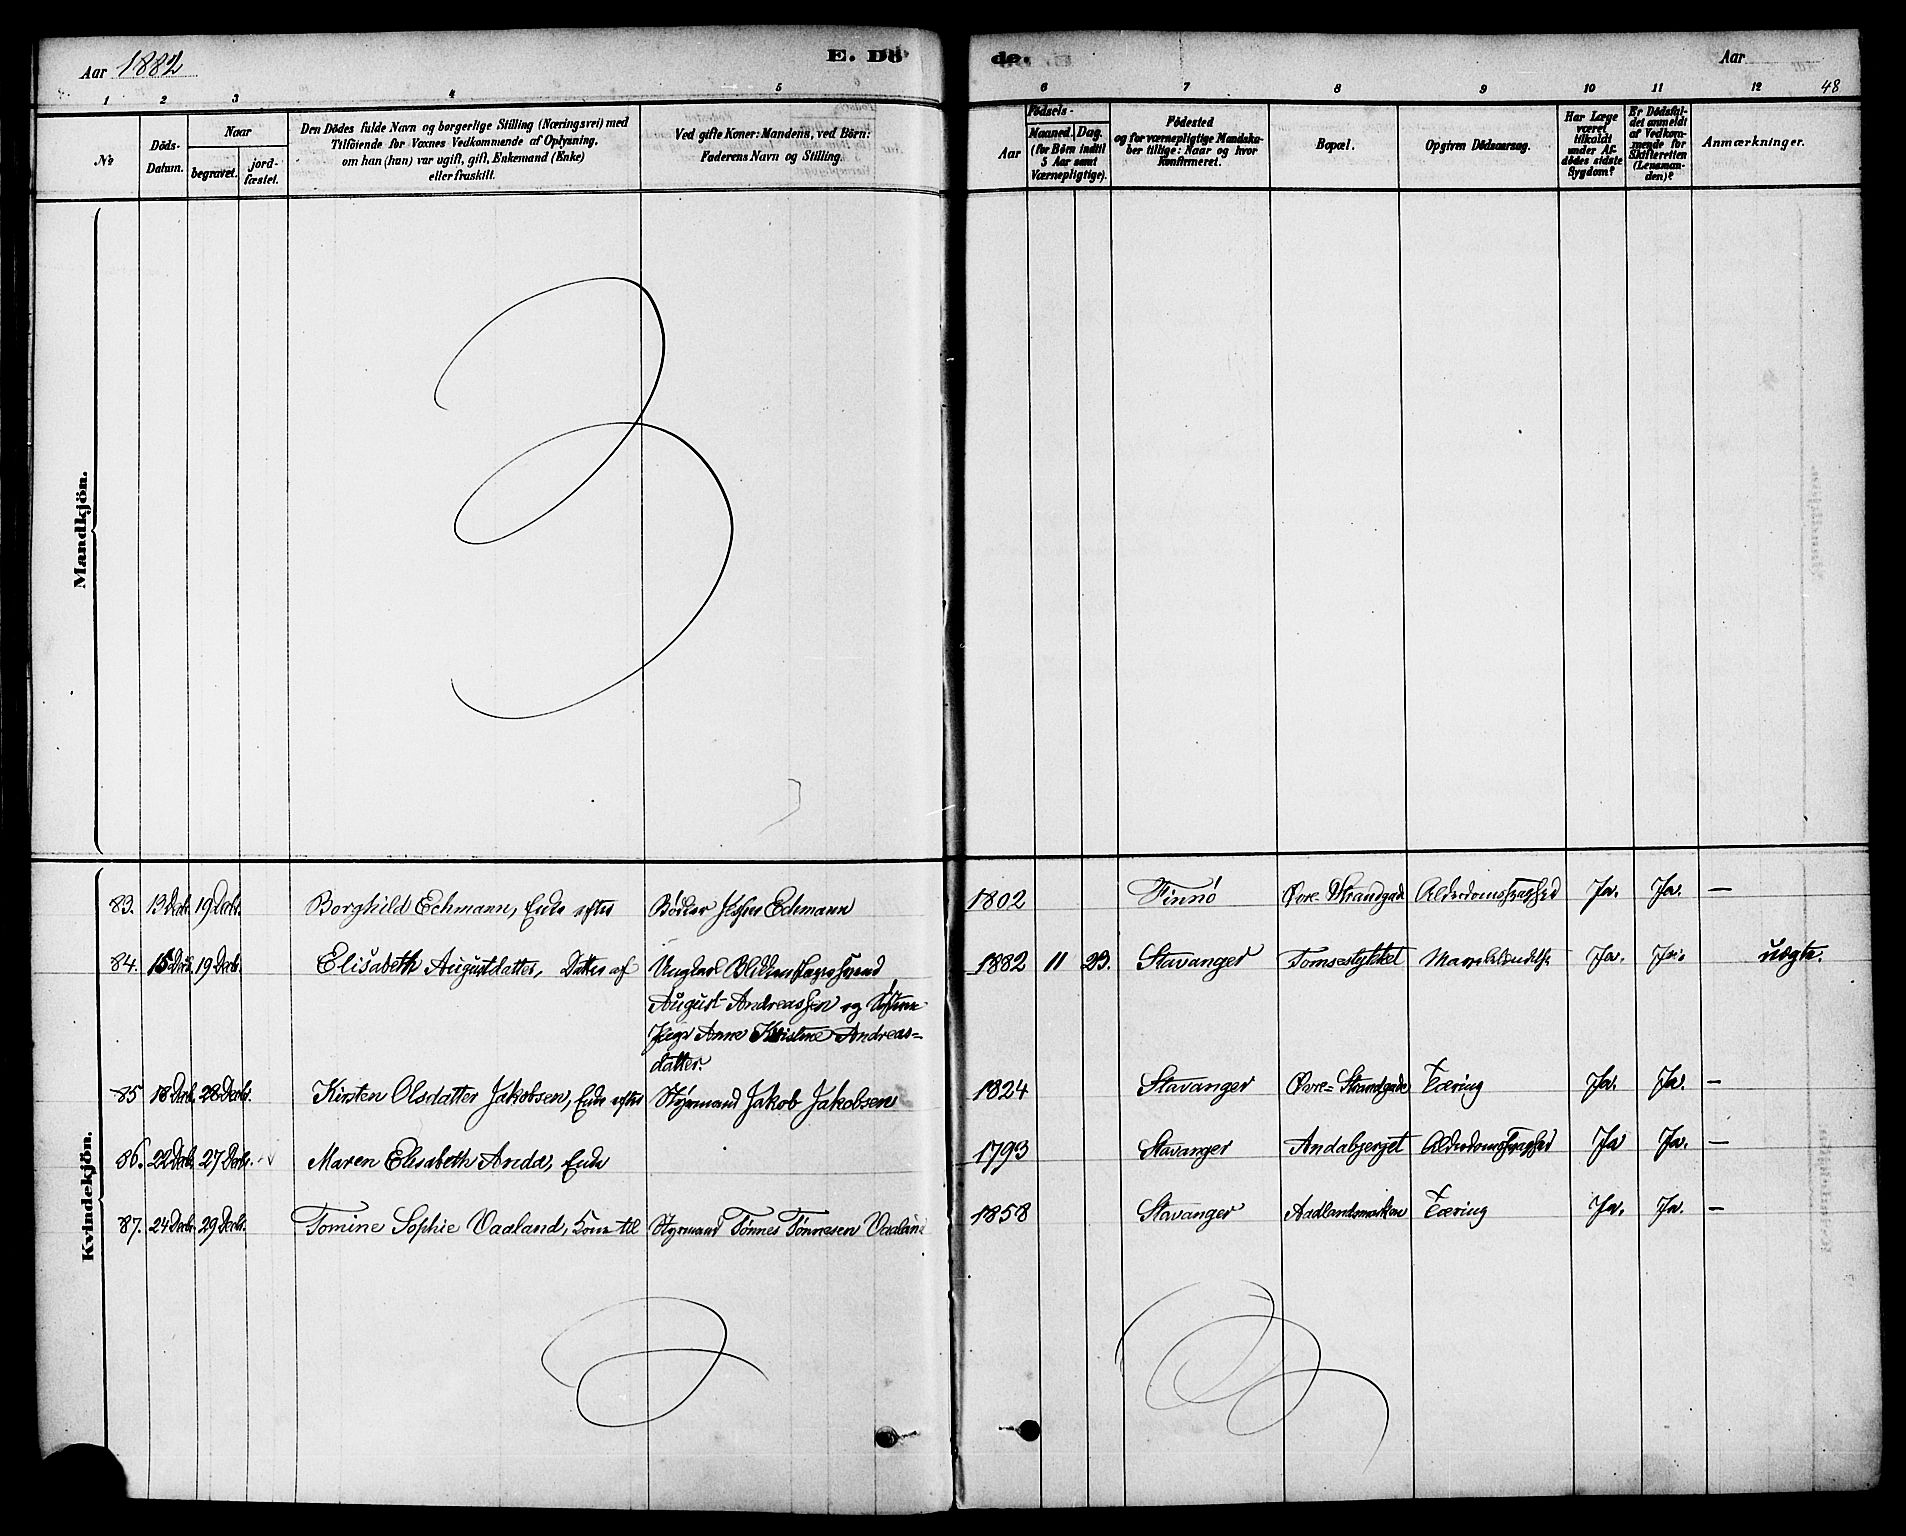 Aar 1882
E. Dö
de.
Aar
48
1 2 3 4 5
6 7 8 9 10 11 12
No
Döds-
Datum.
Naar
begravet.
jord-
fæstet.
Den Dödes fulde Navn og borgerlige Stilling (Næringsvei) med
Tilföiende for Voxnes Vedkommende af Oplysning,
om han (hun) var ugift, gift, Enkemand (Enke)
eller fraskilt.
Ved gifte Koner: Mandens, ved Börn:
Faderens Navn og Stilling.
Födsels-
Aar
Maaned. Dag.
(for Börn indtil
5 Aar samt
Værnepligtige).
Födested
og for værnepligtige Mandska-
ber tillige: Naar og hvor
Konfirmeret.
Bopæl.
Opgiven Dödsaarsag.
Har Læge
været
tilkaldt
under Af-
dödes sidste
Sygdom?
Er Dödsfal-
det anmeldt
af Vedkom-
mende for
Skifteretten
(Lensman-
den)?
Anmærkninger.
Mandkjön.
Kvindekjön.
83. 13 Decb. 19 Decb. Borghild Echmann, Enke efter Bödker Echmann 1802 Finnö Øvre Strandgade Alderdomssvaghed Ja. Ja. —
84. 15 Decb. 19 Decb. Elisabeth Augustdatter, Datter af Ungkarl 1882 11 23. Stavanger Ja. Ja. uægte.
August Andreassen og
Pige Anne Andreas-
datter.
85 18 Decb. 28 Decbr. Kirsten Olsdatter Jakobsen, Enke efter Styrmand Jakob Jakobsen 1824 Stavanger Øvre-Strandgade Tæring Ja. Ja. —
86. 22 Decb. 27 Decbr. Maren Elisabeth Anda, Enke 1793 Stavanger Andabjerget Alderdomssvaghed Ja Ja. —
87. 24 Decb. 29 Decbr. Tomine Sophie Vaaland, Kone til Styrmand Tönnes Tönnesen Vaaland 1858 Stavanger Aadlandsmarken Tæring Ja. Ja. —